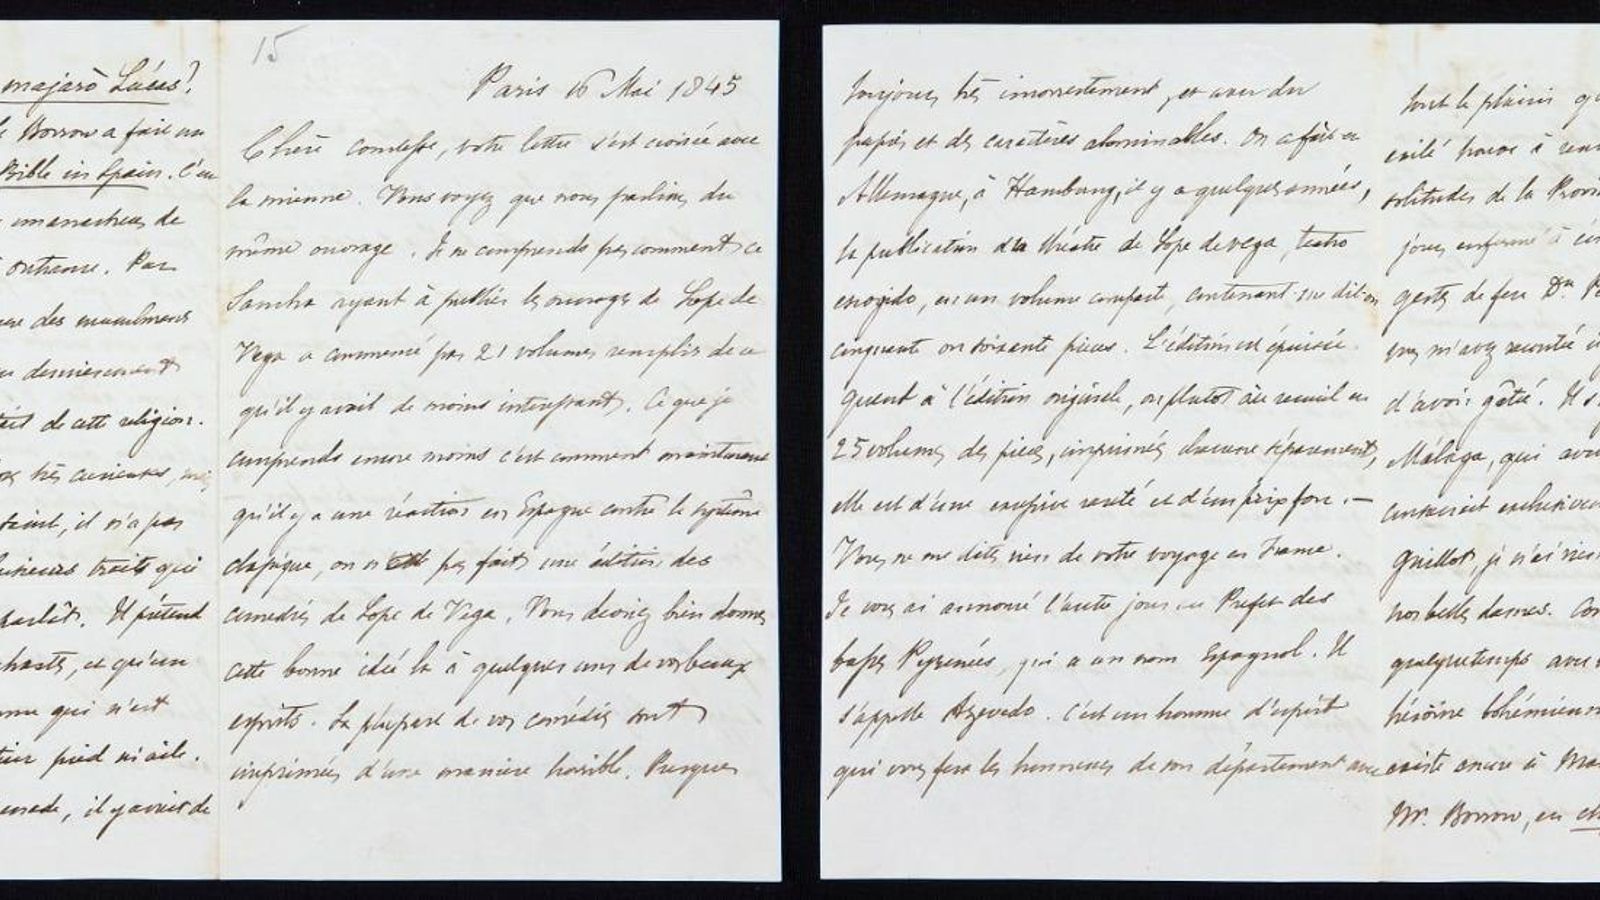 majarò Lúcas?
Borrow a fait un
Bible in Spain. C'est
emmancheurs de
outrance. Par
des musulmans
dernièrement
de cette religion.
très curieuses, mais
il n'a pas
traits qui
parlât. Il prétend
chaste, et qu'un
qui n'est
pied ni aile.
il y avait de
15
Paris 16 Mai 1845
Chère comtesse, votre lettre s'est croisée avec
la mienne. Vous voyez que nous parlions du
même ouvrage. Je ne comprends pas comment ce
Sancha ayant à publier les ouvrages de Lope de
Vega a commencé par 21 volumes remplis de ce
qu'il y avait de moins intéressant. Ce que je
comprends encore moins c'est comment maintenant
qu'il y a une réaction en Espagne contre le système
classique, on n'ait pas fait une édition des
comedias de Lope de Vega. Vous devriez bien donner
cette bonne idée là à quelques uns de vos beaux
esprits. La plupart de vos comédies sont
imprimées d'une manière horrible. Presque
toujours très incorrectement, et avec du
papier et des caractères abominables. On a fait en
Allemagne, à Hambourg, il y a quelques années,
la publication du théâtre de Lope de Vega, teatro
escogido, en un volume compacte, contenant, me dit-on
cinquante ou soixante pièces. L'édition est épuisée.
Quant à l'édition originale, ou plutôt au recueil en
25 volumes des pièces, imprimées chacune séparément,
elle est d'une excessive rareté et d'un prix fou. —
Vous ne me dites rien de votre voyage en France.
Je vous ai annoncé l'autre jour un Préfet des
basses Pyrénées, qui a un nom Espagnol. Il
s'appelle Azevedo. C'est un homme d'esprit
qui vous fera les honneurs de son département avec
tout le plaisir
exilé trouve à
solitudes de la
jours enfermé à
gestes de feu Dn.
vous m'avez raconté
d'avoir gâté. Il
Málaga, qui
concevait
Guillot, je n'ai rien
nos belles dames.
quelque temps avec
héroïne bohémienne
existe encore à
Mr. Borrow, en